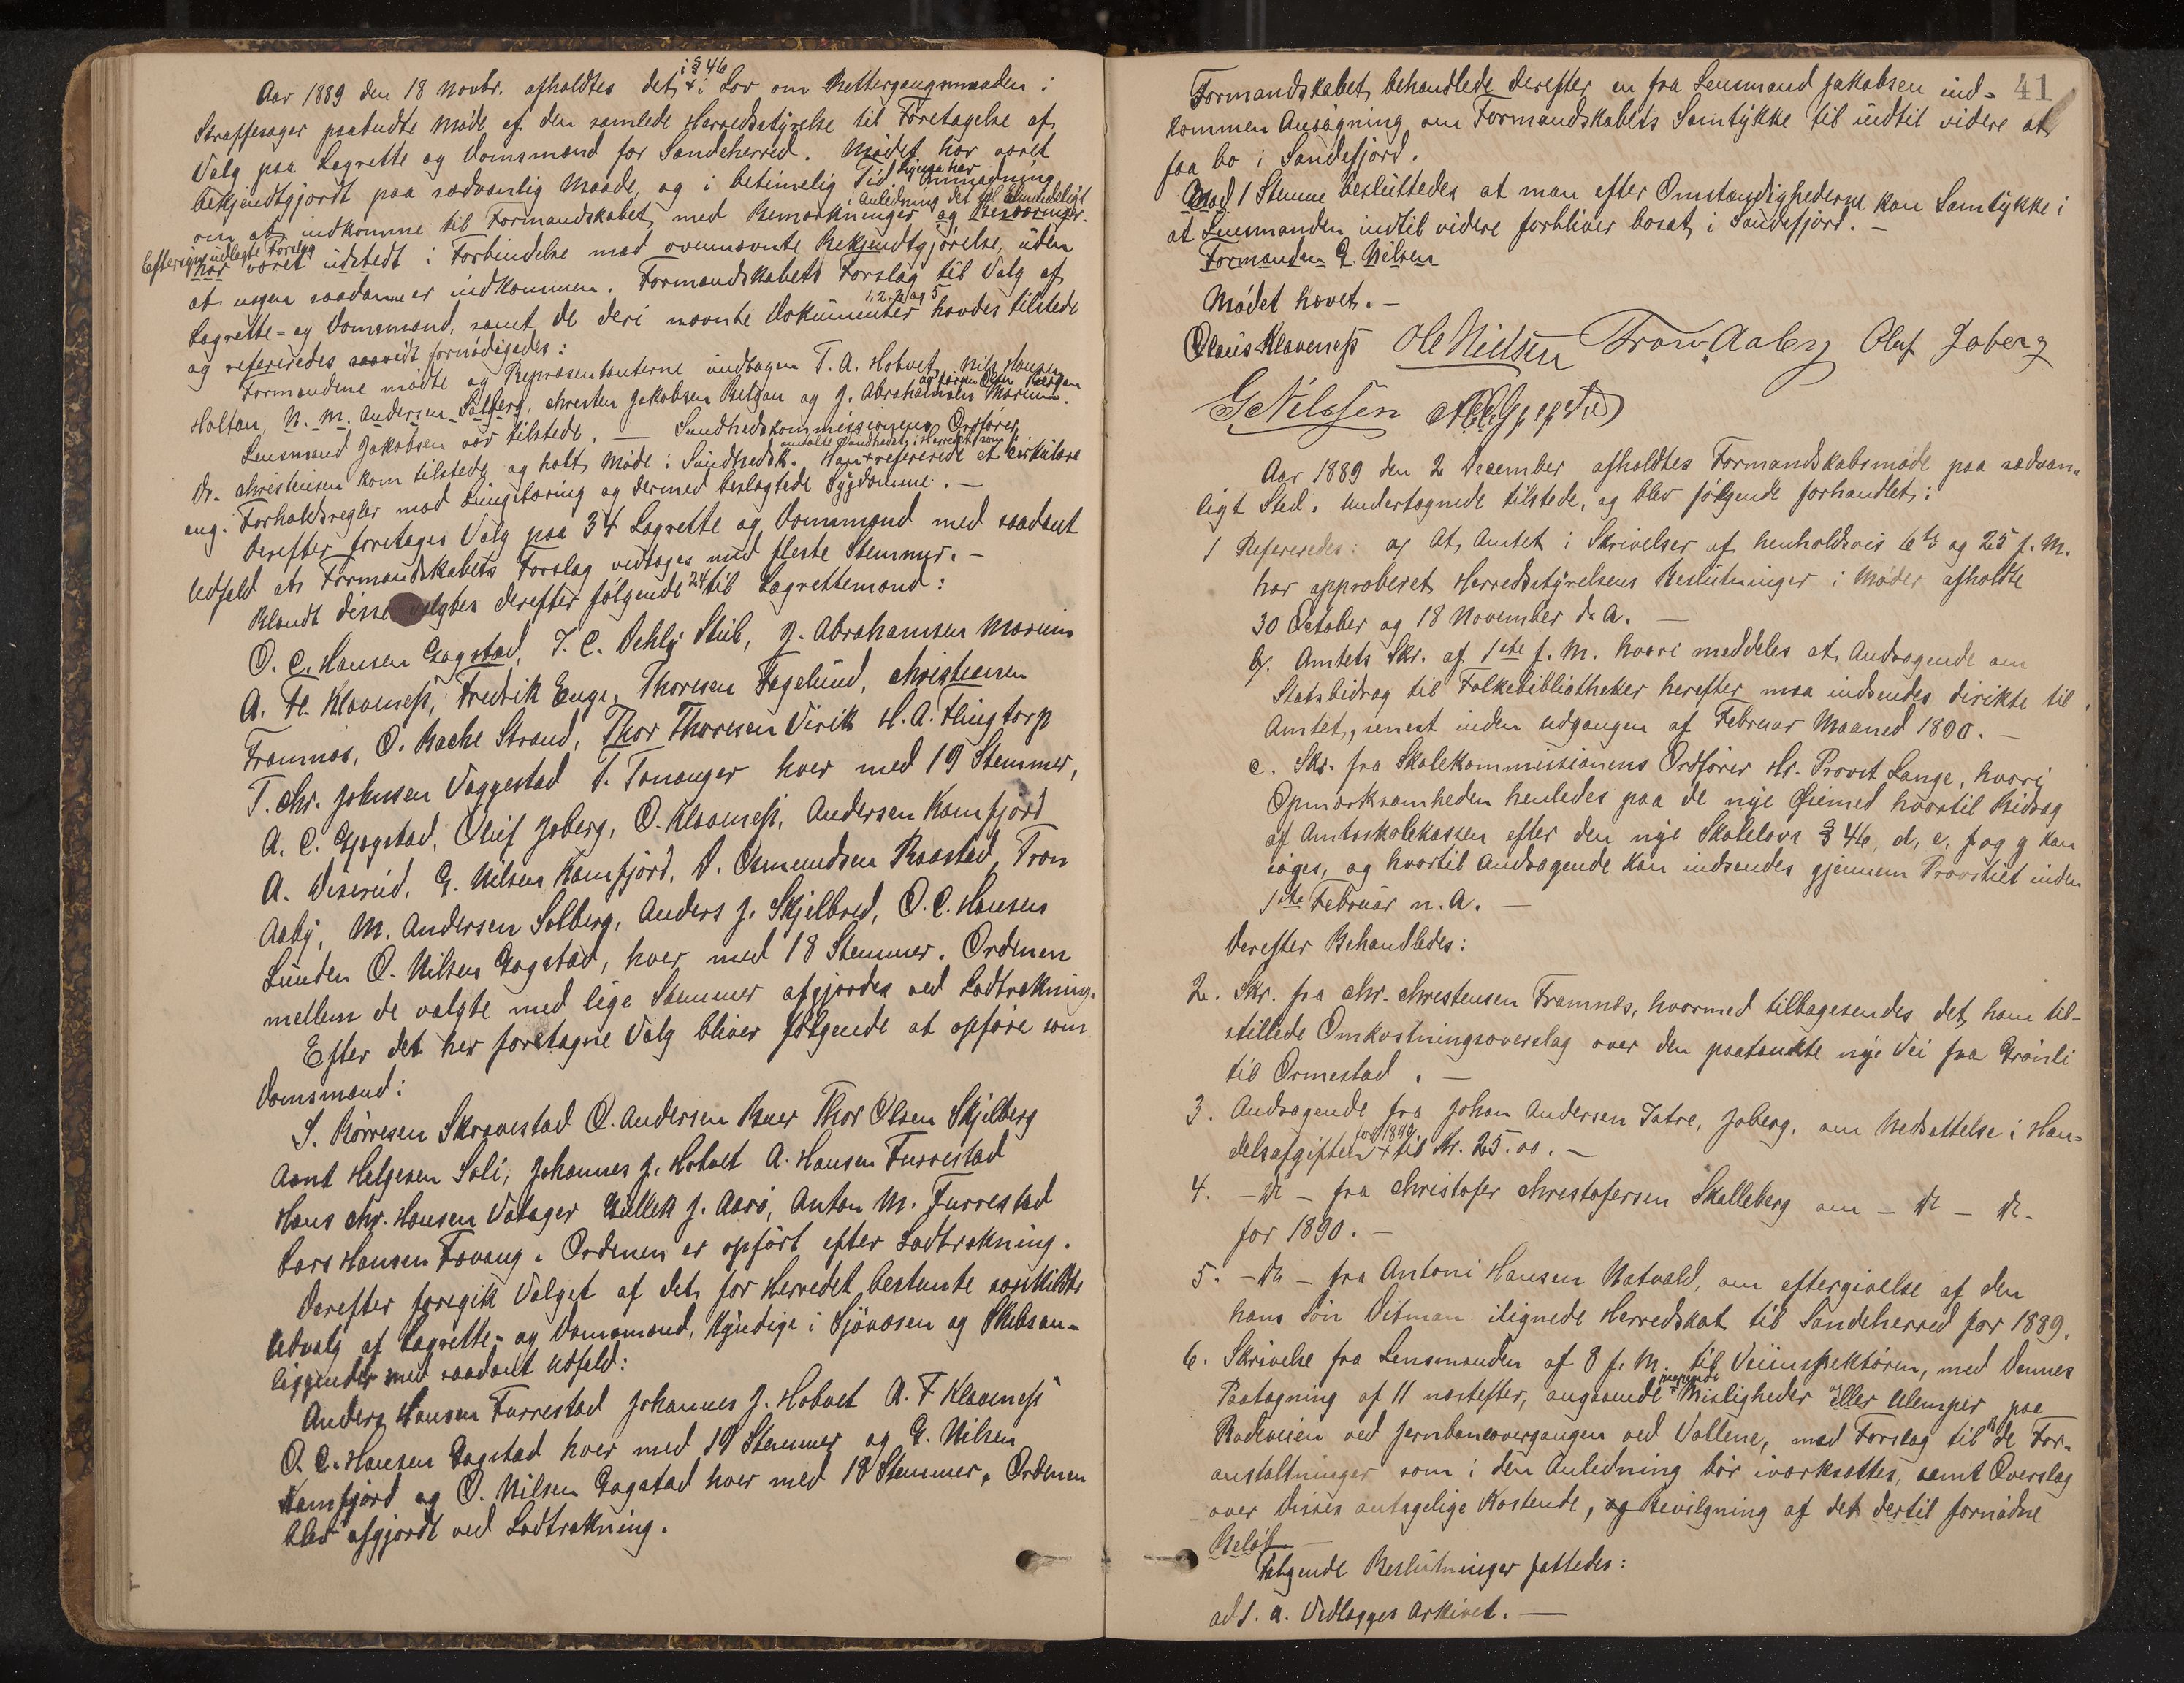 Aar 1889 den 18 Novbr. afholdtes det i § 46 i Lov om Rettergangsmaaden i
Straffesager paabudte Møde af den samlede Herredsstyrelse til Foretagelse af
Valg paa Lagrette og Domsmænd for Sandeherred. Mødet har været
bekjendtgjordt paa sædvanlig Maade, og i betimelig Tid. Ligesaa har Anmodning
om at indkomme til Formandskabet med Bemærkninger og Besværinger i Anledning det til Almindeligt
Eftersyn udlagte Forslag har været udstedt i Forbindelse med ovennævnte Bekjendtgjørelse, uden
at nogen saadanne er indkommen. Formandskabets Forslag til Valg af
Lagrette- og Domsmænd, samt de deri nævnte Dokumenter 1, 2, og 5 havdes tilstede
og refereredes saavidt fornødigedes:
Formændene mødte og Repræsentanterne undtagen T. A. Hotvet, Nils Hansen
Holtan, N. M. Andersen Solberg, Christen Jakobsen Bergan og J. Abrahamsen Morinn.
Lensmand Jakobsen var tilstede. — Sundhedskommissionens Ordfører,
Dr. Christensen kom tilstede og holt Møde i Sundhedsk. Han omtalte Sundheden i Herredet samt refererede et Cirkulære
ang. Forholdsregler mod Lungetæring og dermed beslægtede Sygdomme. —
Derefter foretages Valg paa 34 Lagrette og Domsmænd med saadant
Udfald at Formandskabets Forslag vedtages med fleste Stemmer. —
Blandt disse valgtes derefter følgende 24 til Lagrettemænd:
O. C. Hansen Gogstad, T. C. Dehly Stub, J. Abrahamsen Morinn
A. F. Klavness, Fredrik Enge, Thoresen Fagelund, Christensen
Framnæs, O. Bache Strand, Thor Thoresen Virik H. A. Haugtorp
T. Chr. Johnsen Vaggestad T. Tananger hver med 19 Stemmer,
A. C. Gjogstad, Oluf Joberg, O. Klavness, Andersen Kamfjord
A. Veserud, G. Nilsen Kamfjord, D. Osmundsen Raastad, Tron
Aaby, M. Andersen Solberg, Anders J. Skjelbred, O. C. Hansen
Lunden O. Nilsen Gogstad, hver med 18 Stemmer. Ordenen
mellem de valgte med lige Stemmer afgjordes ved Lodtrækning.
Efter det her foretagne Valg bliver følgende at opføre som
Domsmænd:
S. Børresen Skravestad O. Andersen Buer Thor Olsen Skjelberg
Arnt Helgesen Soli, Johannes J. Hotvet A. Hansen Furrestad
Hans Chr. Hansen Vatager Gullek J. Aarø, Anton M. Furrestad
Lars Hansen Fevang. Ordenen er opført efter Lodtrækning.
Derefter foregik Valget af det for Herredet bestemte særskildte
Udvalg af Lagrette- og Domsmænd, kyndige i Sjøvæsen og Skibsan-
liggender med saadant Udfald:
Anders Hansen Furrestad Johannes J. Hotvet A. F Klavness
O. C. Hansen Gogstad hver med 19 Stemmer og G. Nilsen
Kamfjord og O. Nilsen Gogstad hver med 18 Stemmer. Ordenen
blev afgjordt ved Lodtrækning.
41
Formandskabet behandlede derefter en fra Lensmand Jakobsen ind-
kommen Ansøgning om Formandskabets Samtykke til indtil videre at
faa bo i Sandefjord.
Mod 1 Stemme besluttedes at man efter Omstændighederne kan Samtykke i
at Lensmanden indtil videre forbliver bosat i Sandefjord. —
Formanden G. Nilsen
Mødet hævet. —
Olaus Klavness Ole Nielsen Tron Aaby Oluf Joberg
G Nilssen
Aar 1889 den 2 December afholdtes Formandskabsmøde paa sædvan-
ligt Sted. Undertegnede tilstede, og blev følgende forhandlet:
1 Refereredes: a, At Amtet i Skrivelser af henholdsvis 6te og 25 f. M.
har approberet Herredsstyrelsens Beslutninger i Møder afholdte
30 October og 18 November d. A. —
b. Amtets Skr. af 1ste f. M. hvori meddeles at Andragende om
Statsbidrag til Folkebibliotheker herefter maa indsendes direkte til
Amtet, senest inden Udgangen af Februar Maaned 1890. —
c. Skr. fra Skolekommissionens Ordfører Hr. Provst Lange, hvori
Opmærksomheden henledes paa de nye Øiemed hvortil Bidrag
af Amtsskolekassen efter den nye Skolelovs § 46, d, e, f og g kan
søges, og hvortil Andragende kan indsendes gjennem Provstiet inden
1ste Februar n. A. —
Derefter Behandledes:
2. Skr. fra Chr. Christensen Framnæs, hvormed tilbagesendes det ham til-
stillede Omkostningsoverslag over den paatænkte nye Vei fra Grønli
til Ormestad. —
3. Andragende fra Johan Andersen Tatre, Joberg, om Nedsættelse i Han-
delsafgiften for 1890 til Kr. 25.00. —
4. — Do — fra Christofer Christofersen Skalleberg om — Do — Do —
for 1890. —
5. — Do — fra Antoni Hansen Natvald, om eftergivelse af den
hans Søn Ditman ilignede Herredskat til Sandeherred for 1889.
6. Skrivelse fra Lensmanden af 8 f. M. til Veiinspektøren, med Dennes
Paategning af 11 næstefter, angaaende Misligheder eller Ulemper paa
Rodeveien ved Jernbaneovergangen ved Vollene, med Forslag til de For-
anstaltninger som i den Anledning bør iværksættes, samt Overslag
over Disses antagelige Kostende, og Bevilgning af det dertil fornødne
Beløb —
Følgende Beslutninger fattedes:
ad 1. a. Vedlægges Arkivet. —